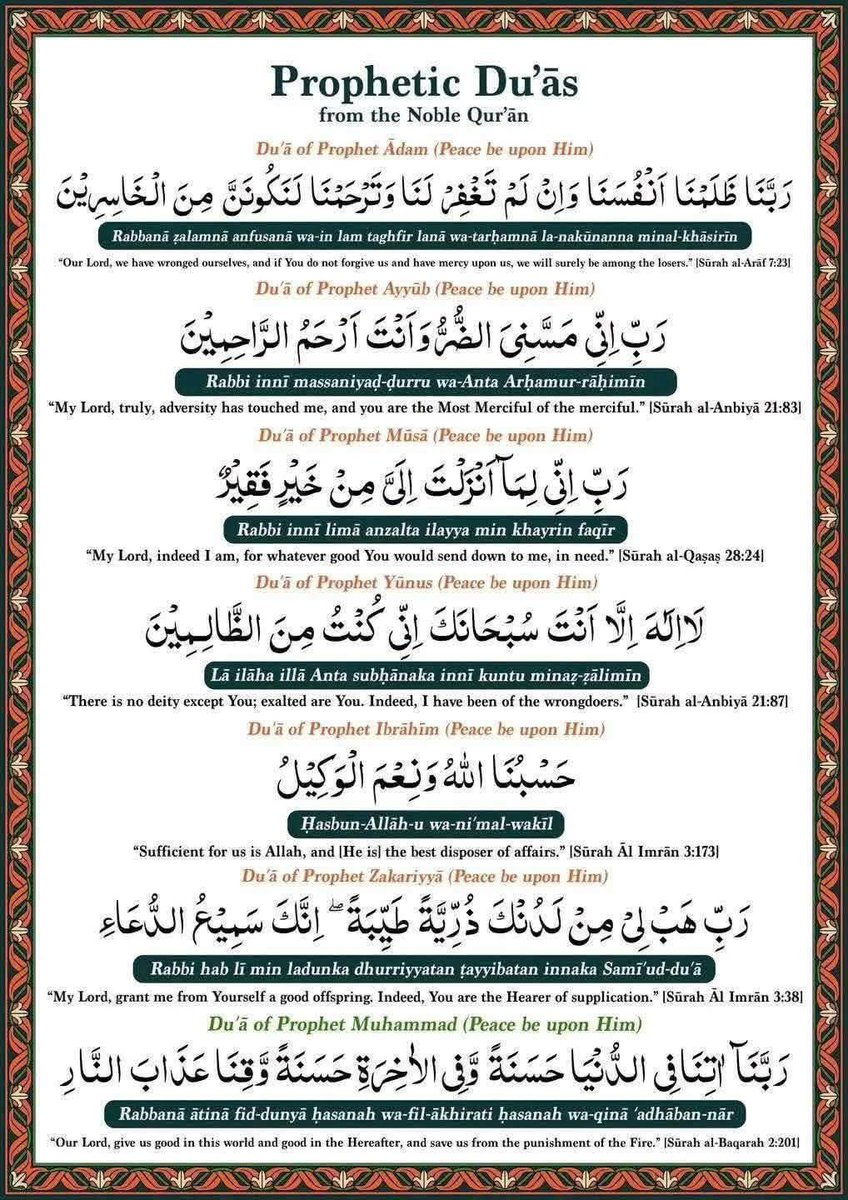 Prophetic Du’ās
from the Noble Qur’ān
Du’ā of Prophet Ādam (Peace be upon Him)
رَبَّنَا ظَلَمْنَا اَنْفُسَنَا وَاِنْ لَمْ تَغْفِرْ لَنَا وَتَرْحَمْنَا لَنَكُونَنَّ مِنَ الْخَاسِرِيْنَ
Rabbanā ẓalamnā anfusanā wa-in lam taghfir lanā wa-tarḥamnā la-nakūnanna minal-khāsirīn
“Our Lord, we have wronged ourselves, and if You do not forgive us and have mercy upon us, we will surely be among the losers.” [Sūrah al-Arāf 7:23]
Du’ā of Prophet Ayyūb (Peace be upon Him)
رَبِّ اِنِّي مَسَّنِيَ الضُّرُّ وَاَنْتَ اَرْحَمُ الرَّاحِمِيْنَ
Rabbi innī massaniyaḍ-ḍurru wa-Anta Arḥamur-rāḥimīn
“My Lord, truly, adversity has touched me, and you are the Most Merciful of the merciful.” [Sūrah al-Anbiyā 21:83]
Du’ā of Prophet Mūsā (Peace be upon Him)
رَبِّ اِنِّي لِمَآ اَنْزَلْتَ اِلَيَّ مِنْ خَيْرٍ فَقِيْرٌ
Rabbi innī limā anzalta ilayya min khayrin faqīr
“My Lord, indeed I am, for whatever good You would send down to me, in need.” [Sūrah al-Qaṣaṣ 28:24]
Du’ā of Prophet Yūnus (Peace be upon Him)
لَا اِلٰهَ اِلَّا اَنْتَ سُبْحَانَكَ اِنِّي كُنْتُ مِنَ الظَّالِمِيْنَ
Lā ilāha illā Anta subḥānaka innī kuntu minaẓ-ẓālimīn
“There is no deity except You; exalted are You. Indeed, I have been of the wrongdoers.” [Sūrah al-Anbiyā 21:87]
Du’ā of Prophet Ibrāhīm (Peace be upon Him)
حَسْبُنَا اللّٰهُ وَنِعْمَ الْوَكِيْلُ
Ḥasbun-Allāh-u wa-ni’mal-wakīl
“Sufficient for us is Allah, and [He is] the best disposer of affairs.” [Sūrah Āl Imrān 3:173]
Du’ā of Prophet Zakariyyā (Peace be upon Him)
رَبِّ هَبْ لِيْ مِنْ لَدُنْكَ ذُرِّيَّةً طَيِّبَةً ۖ اِنَّكَ سَمِيْعُ الدُّعَاءِ
Rabbi hab lī min ladunka dhurriyyatan ṭayyibatan innaka Samī’ud-du’ā
“My Lord, grant me from Yourself a good offspring. Indeed, You are the Hearer of supplication.” [Sūrah Āl Imrān 3:38]
Du’ā of Prophet Muhammad (Peace be upon Him)
رَبَّنَآ اٰتِنَا فِي الدُّنْيَا حَسَنَةً وَّفِي الْاٰخِرَةِ حَسَنَةً وَّقِنَا عَذَابَ النَّارِ
Rabbanā ātinā fid-dunyā ḥasanah wa-fil-ākhirati ḥasanah wa-qinā ’adhāban-nār
“Our Lord, give us good in this world and good in the Hereafter, and save us from the punishment of the Fire.” [Sūrah al-Baqarah 2:201]